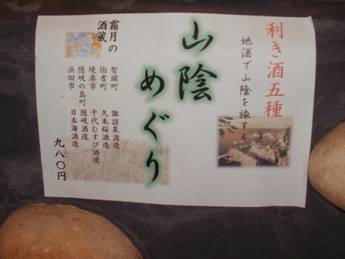 利き酒五種
地酒で山陰を旅する
山陰
めぐり
霜月の
酒蔵
智頭町 諏訪泉酒造
伯耆町 久米桜酒造
境港市 千代むすび酒造
隠岐の島町 隠岐酒造
浜田市 日本海酒造
九八〇円